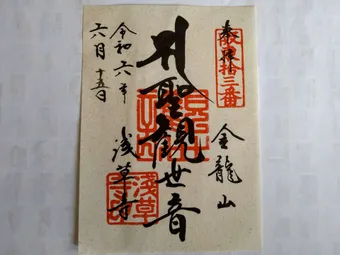 奉拝
坂東拾三番
金龍山
聖観世音
浅草寺
令和六年
六月十五日